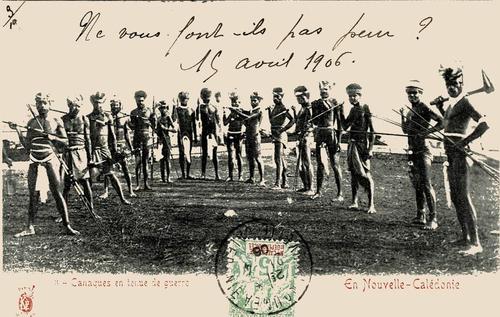 Ne vous font-ils pas peur ?
15 avril 1906.
- Canaques en tenue de guerre
En Nouvelle-Calédonie